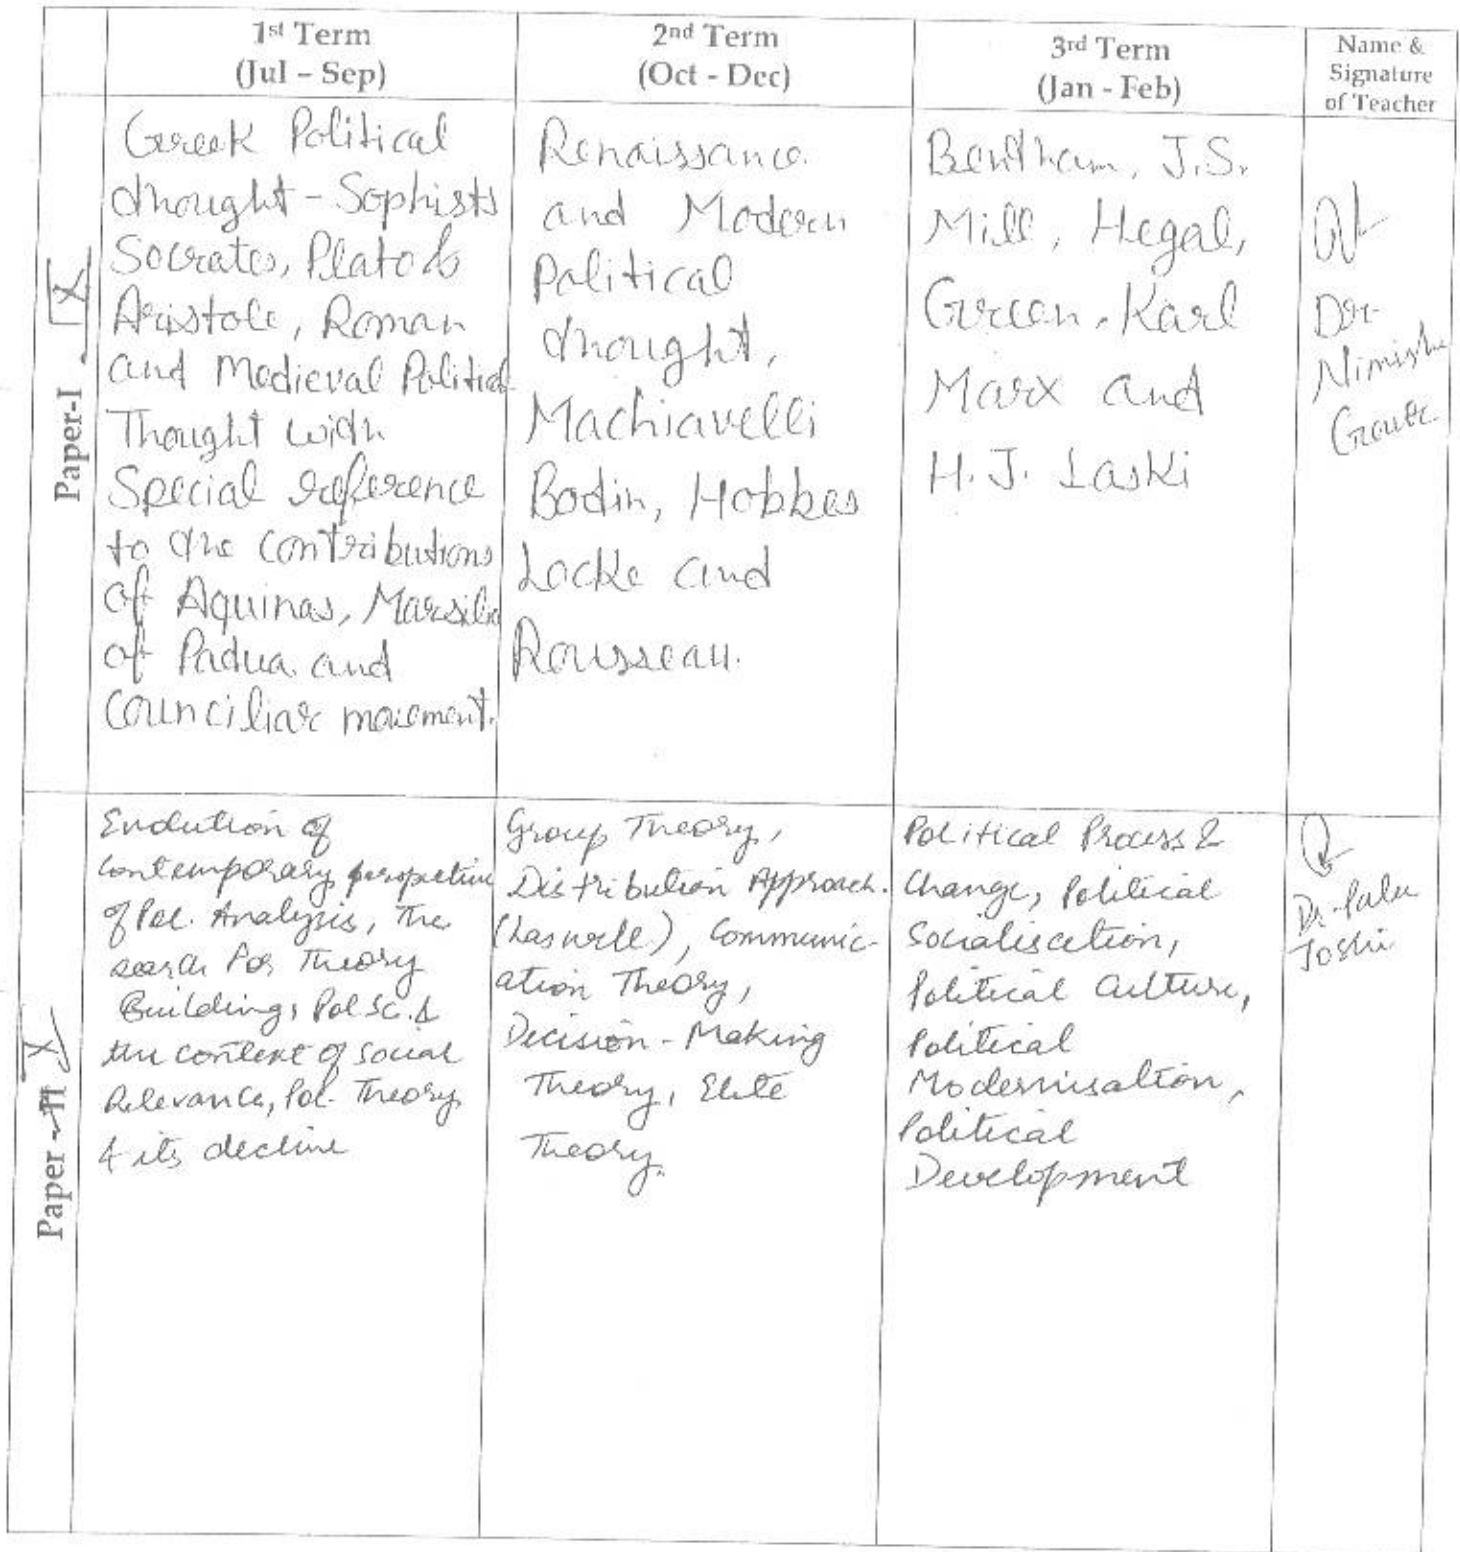 1st Term
(Jul – Sep)
2nd Term
(Oct - Dec)
3rd Term
(Jan - Feb)
Name &
Signature
of Teacher
Paper-I
Greek Political
thought - Sophists
Socrates, Plato &
Aristole, Roman
and Medieval Political
Thought with
Special reference
to the contributions
of Aquinas, Marsilio
of Padua and
Counciliar movement.
Renaissance
and Modern
Political
thought,
Machiavelli
Bodin, Hobbes
Locke and
Rousseau.
Bentham, J.S.
Mill, Hegal,
Green, Karl
Marx and
H.J. Laski
Dr.
Nimisha
Paper -
Evolution of
Contemporary perspective
of Pol. Analysis, The
search for Theory
Building, Pol Sc. &
the context of social
Relevance, Pol. Theory
& its decline
Group Theory,
Distribution Approach.
(Laswell), Communic-
ation Theory,
Decision - Making
Theory, Elite
Theory.
Political Process &
Change, Political
Socialisation,
Political Culture,
Political
Modernisation,
Political
Development
Dr.
Joshi